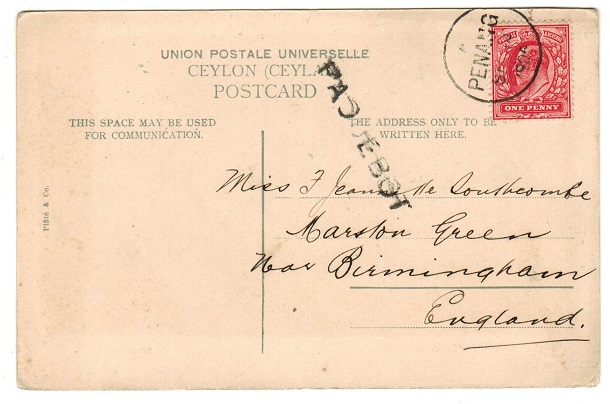 UNION POSTALE UNIVERSELLE
CEYLON (CEYLA
POSTCARD
PAQUEBOT
PENANG
ONE PENNY
THIS SPACE MAY BE USED
FOR COMMUNICATION.
THE ADDRESS ONLY TO BE
WRITTEN HERE.
Miss F Jeannette Southcombe
Marston Green
Near Birmingham
England.
Plâté & Co.